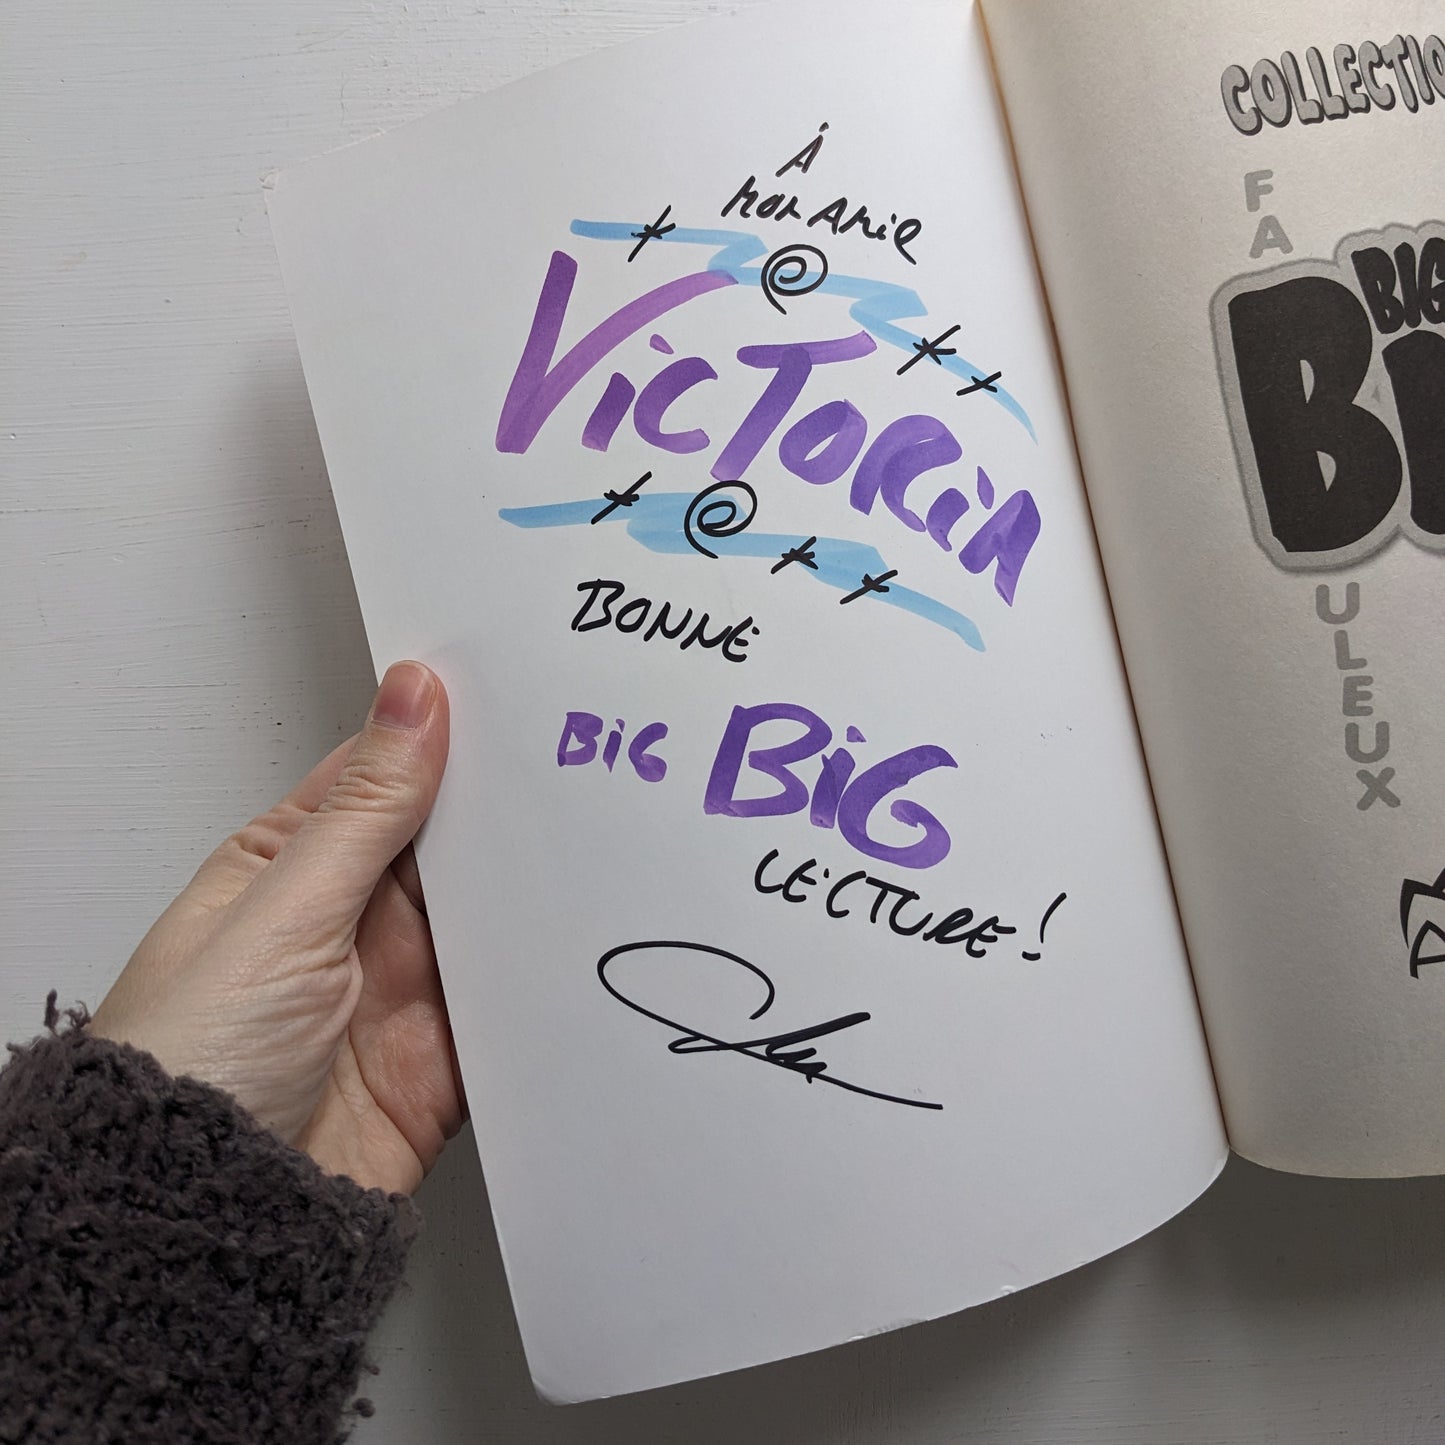 À
MON AMIE
VICTORIA
BONNE
BIG BIG
LECTURE!
COLLECTIO
FA
BIG
BI
ULEUX